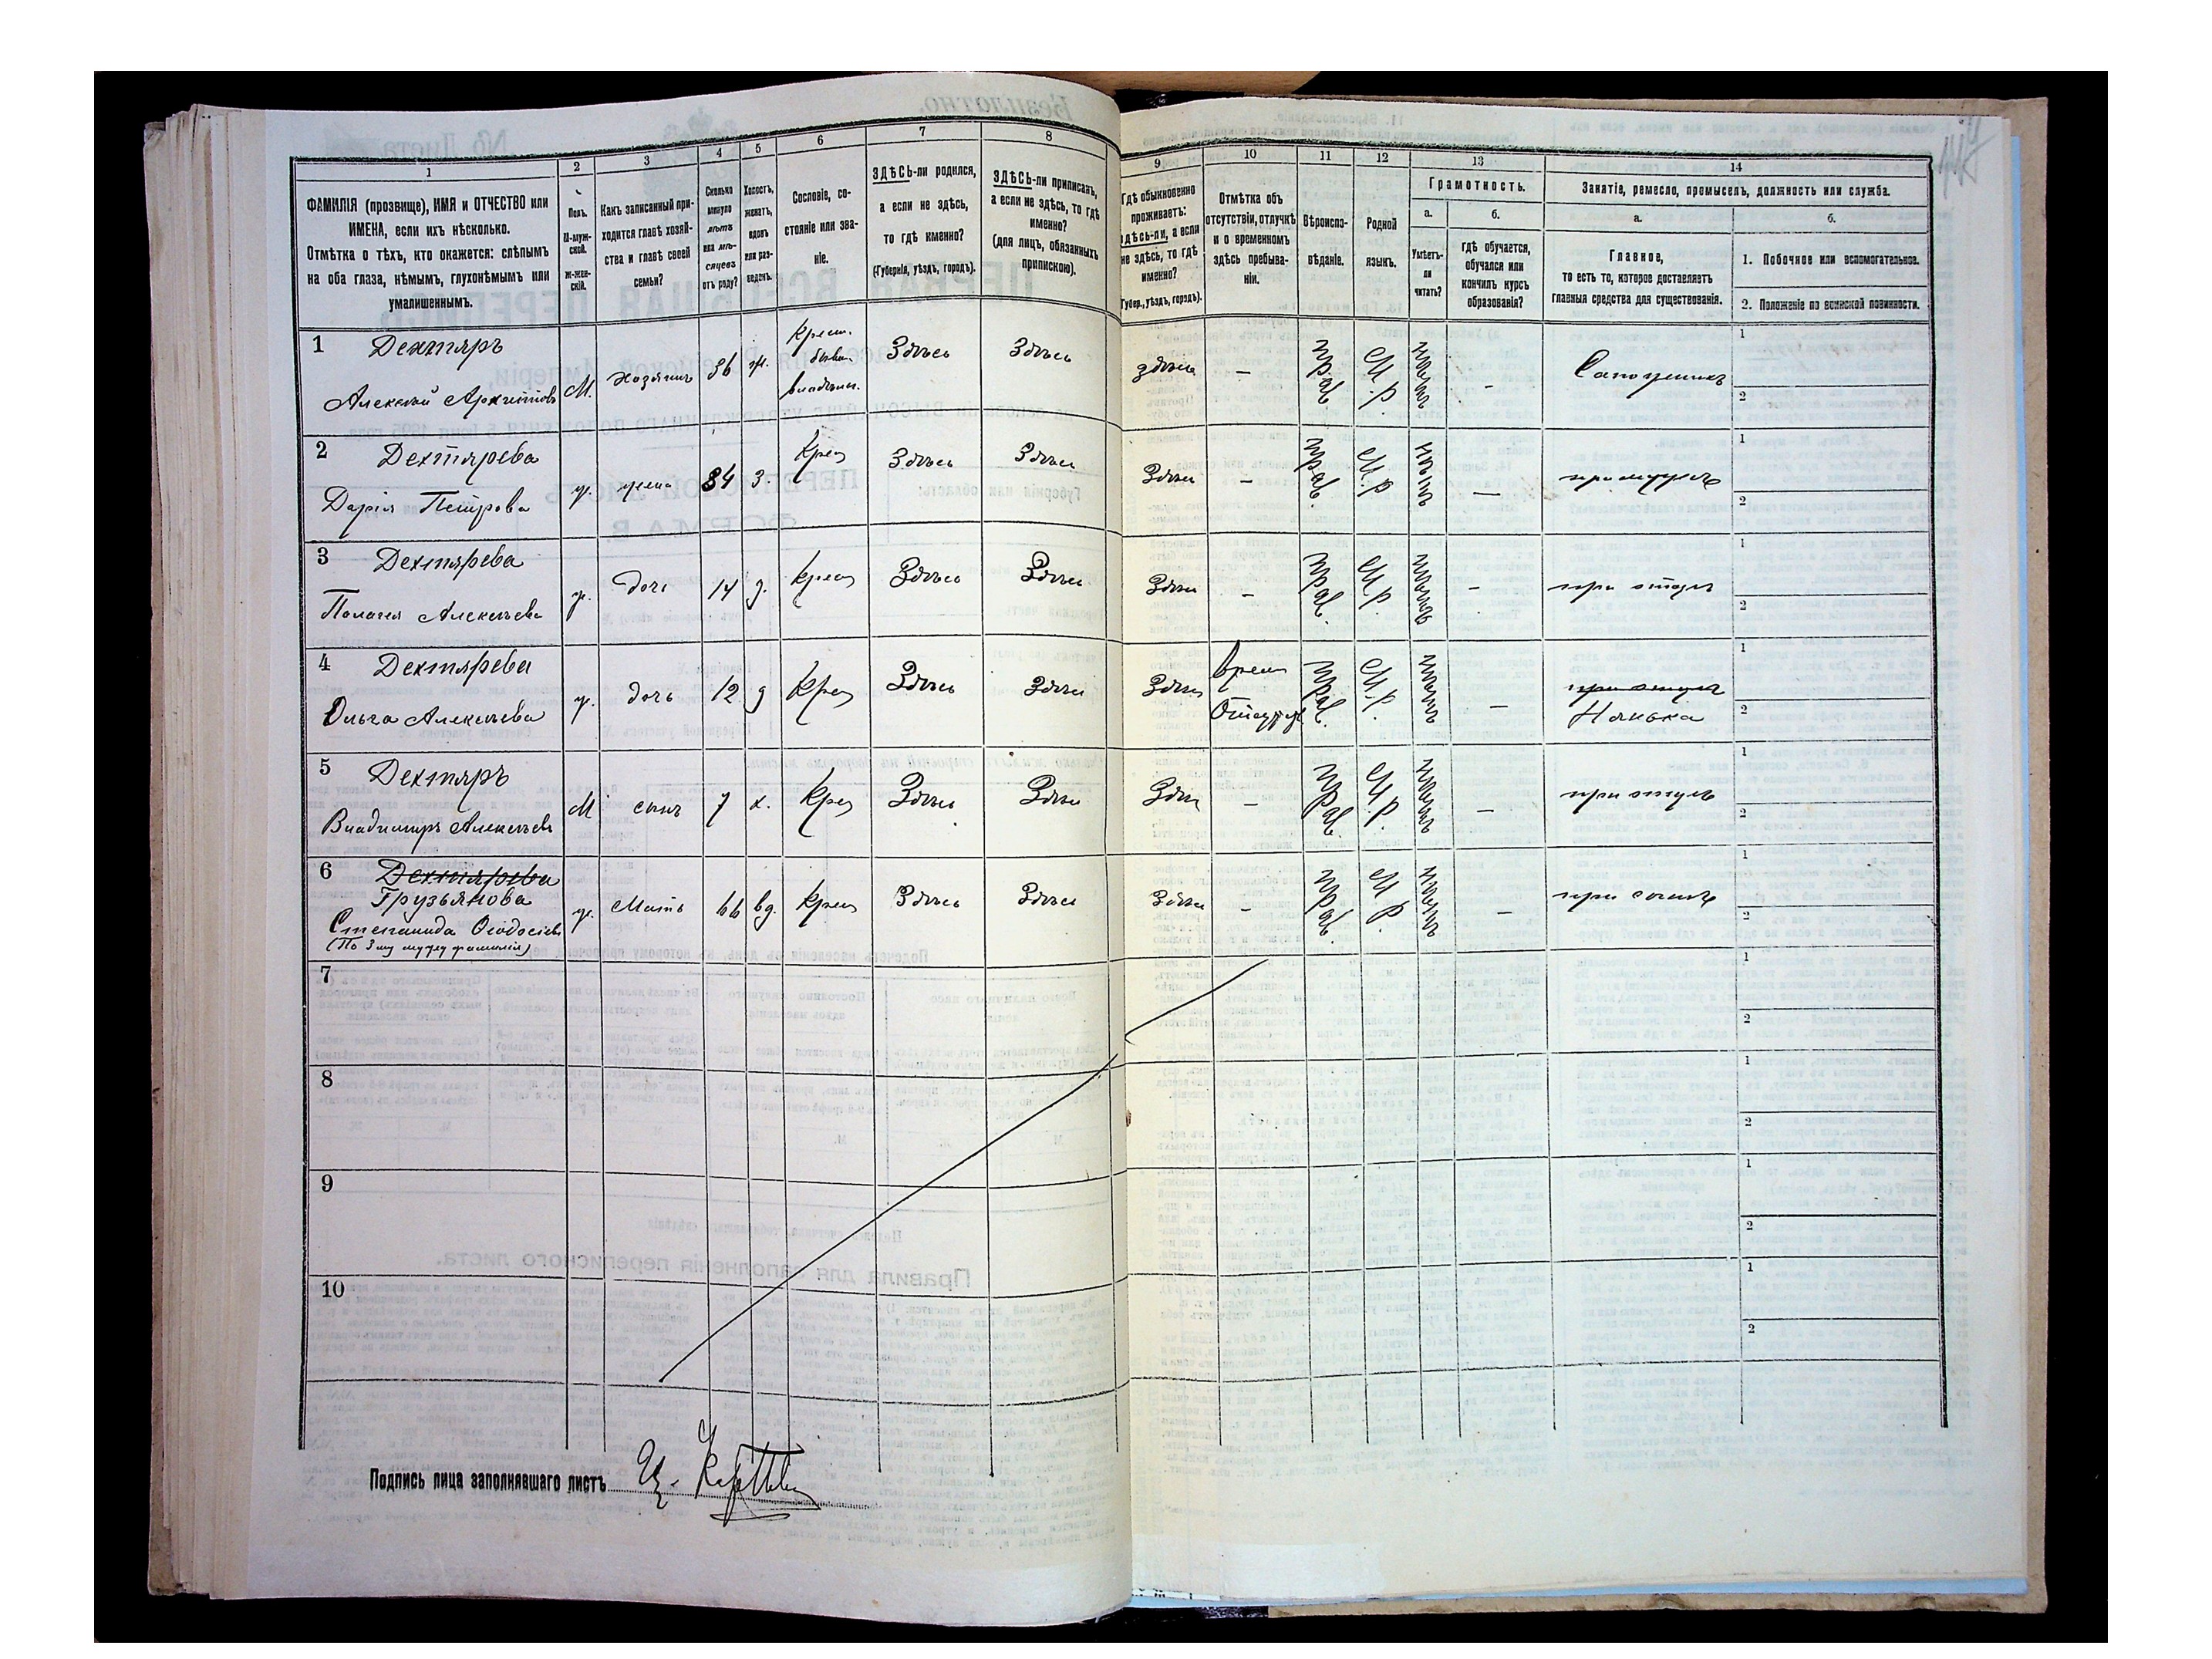 1 2 3 4 5 6 7 8 9 10 11 12 13 14
ФАМИЛІЯ (прозвище), ИМЯ и ОТЧЕСТВО или
ИМЕНА, если ихъ нѣсколько.
Отмѣтка о тѣхъ, кто окажется: слѣпымъ
на оба глаза, нѣмымъ, глухонѣмымъ или
умалишеннымъ.
Полъ.
М-муж-
ской.
Ж-жен-
скій.
Какъ записанный при-
ходится главѣ хозяй-
ства и главѣ своей
семьи?
Сколько
минуло
лѣтъ
или мѣ-
сяцевъ
отъ роду?
Холостъ,
женатъ,
вдовъ
или раз-
веденъ.
Сословіе, со-
стояніе или зва-
ніе.
ЗДѢСЬ-ли родился,
а если не здѣсь,
то гдѣ именно?
(Губернія, уѣздъ, городъ).
ЗДѢСЬ-ли приписанъ,
а если не здѣсь, то гдѣ
именно?
(для лицъ, обязанныхъ
припискою).
Гдѣ обыкновенно
проживаетъ:
здѣсь-ли, а если
не здѣсь, то гдѣ
именно?
(Губер., уѣздъ, городъ).
Отмѣтка объ
отсутствіи, отлучкѣ
и о временномъ
здѣсь пребыва-
ніи.
Вѣроиспо-
вѣданіе.
Родной
языкъ.
Грамотность.
а.
Умѣетъ-
ли
читать?
б.
гдѣ обучается,
обучался или
кончилъ курсъ
образованія?
Занятіе, ремесло, промыселъ, должность или служба.
а.
Главное,
то есть то, которое доставляетъ
главныя средства для существованія.
б.
1. Побочное или вспомогательное.
2. Положеніе по воинской повинности.
1 Дехтяръ
Алексѣй Архиповъ М. хозяинъ 36 ж. Крест. бывш. владѣльч. Здѣсь Здѣсь здѣсь — Прав. М.р. — Сапожникъ 1 2
2 Дехтярева
Дарія Петрова ж. жена 34 з. Крес Здѣсь Здѣсь Здѣсь — Прав. М.р. нѣтъ — при мужѣ 1 2
3 Дехтярева
Палагея Алексѣева ж. дочь 14 д. Крес Здѣсь Здѣсь Здѣсь — Прав. М.р. — при отцѣ 1 2
4 Дехтярева
Ольга Алексѣева ж. дочь 12 д Крес Здѣсь Здѣсь Здѣсь Врем Прав. М.р. — при отцѣ
Нянька 1 2
5 Дехтяръ
Владимиръ Алексѣевъ М сынъ 7 х. Крес Здѣсь Здѣсь Здѣсь — Прав. М.р. — при отцѣ 1 2
6 Дехтярева
Грузьянова
Степанида Ѳеодосіева
(По 3 му мужу фамилія) ж. Мать 66 вд. Крес Здѣсь Здѣсь Здѣсь — Прав. М.р. — при сынѣ 1 2
7 1 2
8 1 2
9 1 2
10 1 2
Подпись лица заполнявшаго листъ